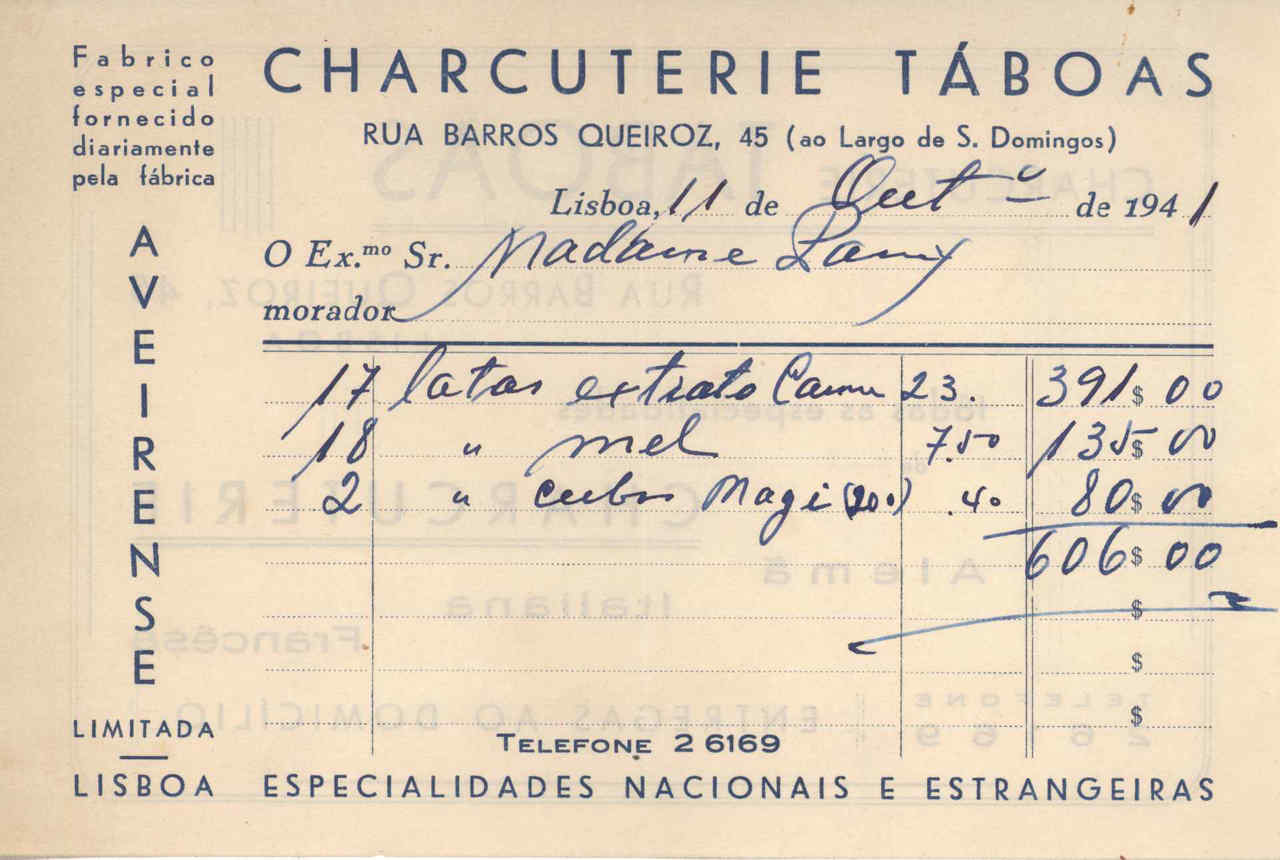 Fabrico
especial
fornecido
diariamente
pela fábrica
AVEIRENSE
LIMITADA
LISBOA
CHARCUTERIE TÁBOAS
RUA BARROS QUEIROZ, 45 (ao Largo de S. Domingos)
Lisboa, 11 de Outº de 1941
O Ex.mo Sr. Madame
morador
17 latas extrato Carne 23. 391$00
18 " mel 7.50 135$00
2 " cubos Magi (200) .40 80$00
606$00
$
$
$
TELEFONE 2 6169
ESPECIALIDADES NACIONAIS E ESTRANGEIRAS